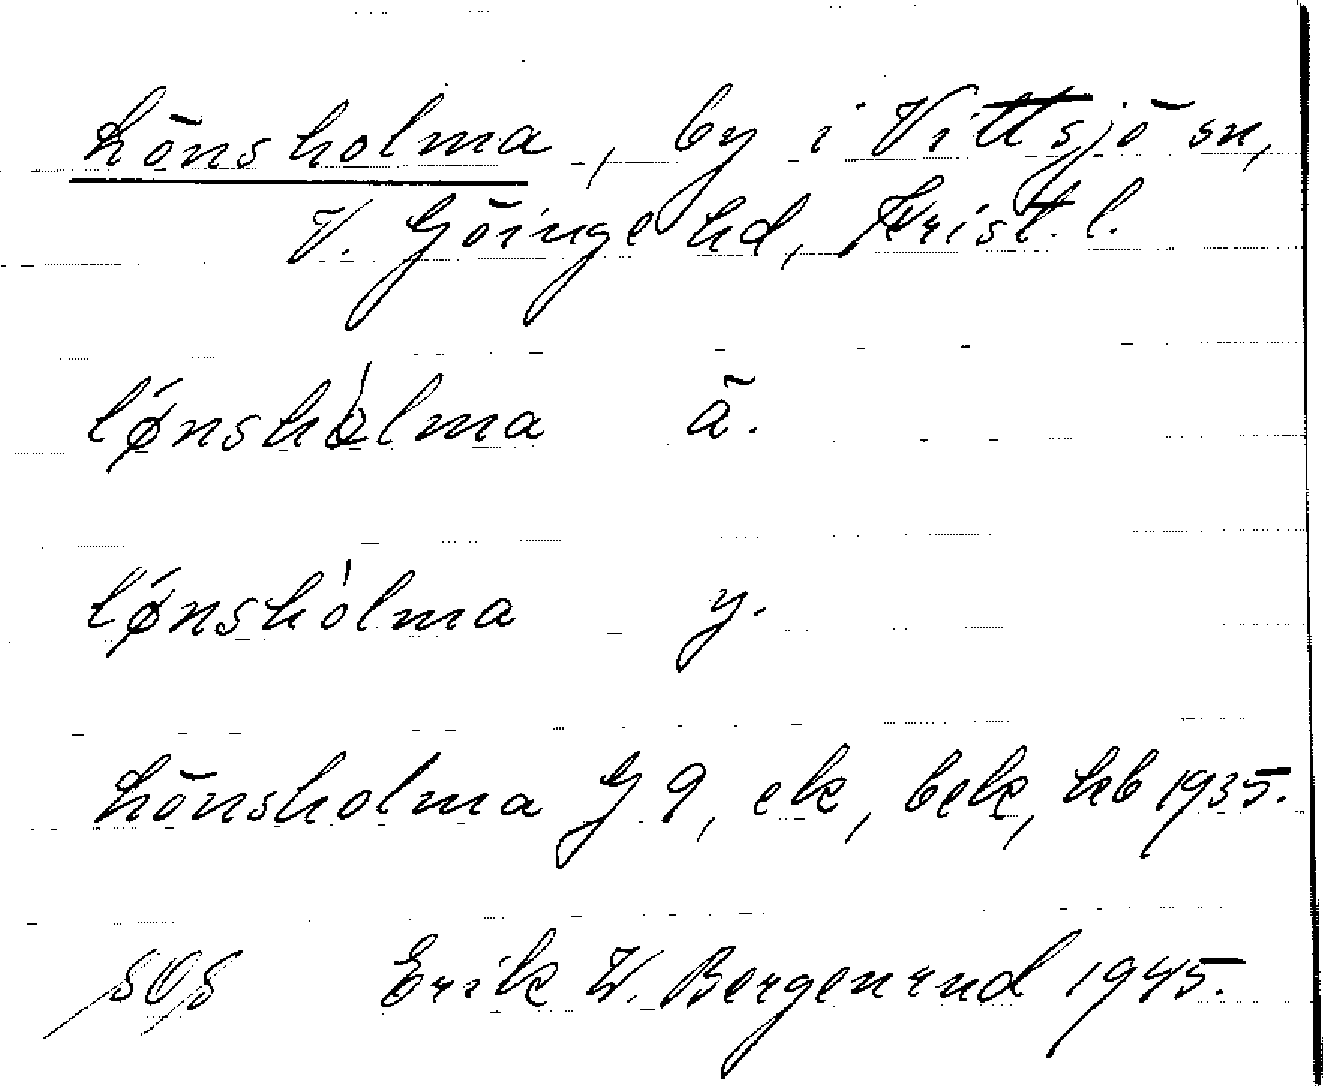 Lönsholma, by i Vittsjö sn,
V. Göinge hd, Krist. l.
lǿnshòlma ä.
lǿnshòlma y.
Lönsholma G 9, ek, bek, hb 1935.
Erik W. Bergenrud 1945.